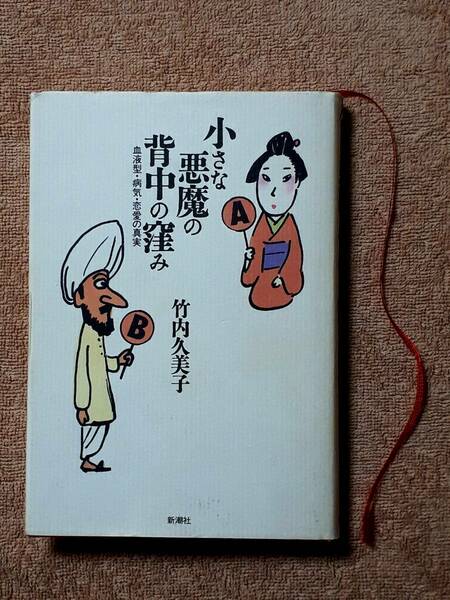 小さな
悪魔の
背中の窪み
血液型・病気・恋愛の真実
竹内久美子
A
B
新潮社